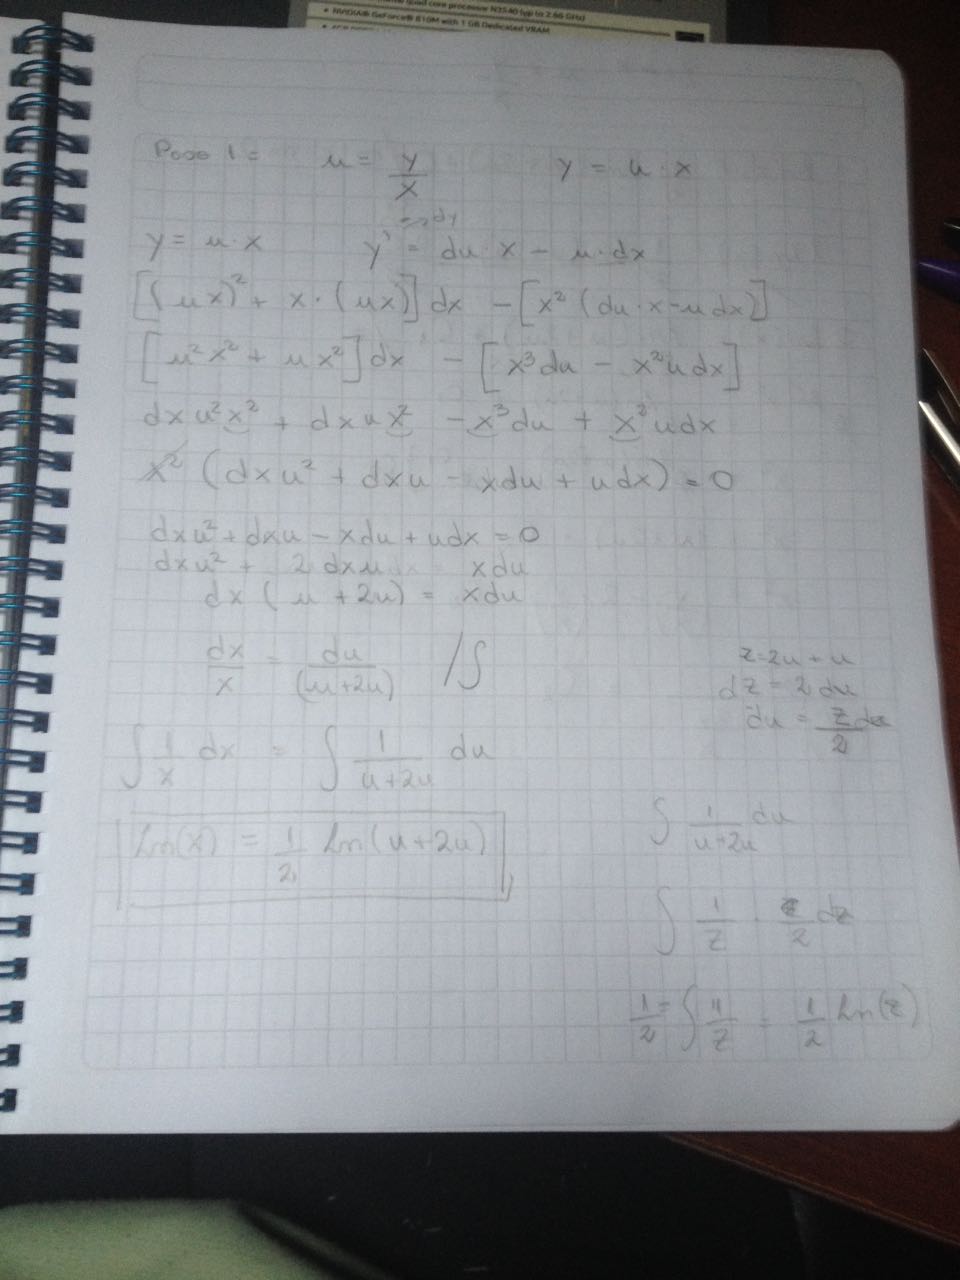 quad core processor N3540 (up to 2.66 GHz)
• NVIDIA® GeForce® 810M with 1 GB Dedicated VRAM
Paso 1 = u = y/x y = u · x
dy
y = u · x y' = du · x - u · dx
[(ux)² + x · (ux)] dx - [x² (du · x - u dx)]
[u²x² + ux²] dx - [x³du - x²u dx]
dx u² x² + dx u x² - x³du + x² u dx
x² (dxu² + dxu - xdu + udx) = 0
dxu² + dxu - xdu + udx = 0
dxu² + 2 dxu = xdu
dx (u + 2u) = xdu
dx/x = du/(u+2u) /∫
z = 2u + u
dz = 2 du
du = z/2
∫ 1/x dx = ∫ 1/(u+2u) du
∫ 1/(u+2u) du
Ln(x) = 1/2 Ln(u+2u)
∫ 1/z · z/2 dz
1/2 = ∫ 1/z = 1/2 Ln(z)